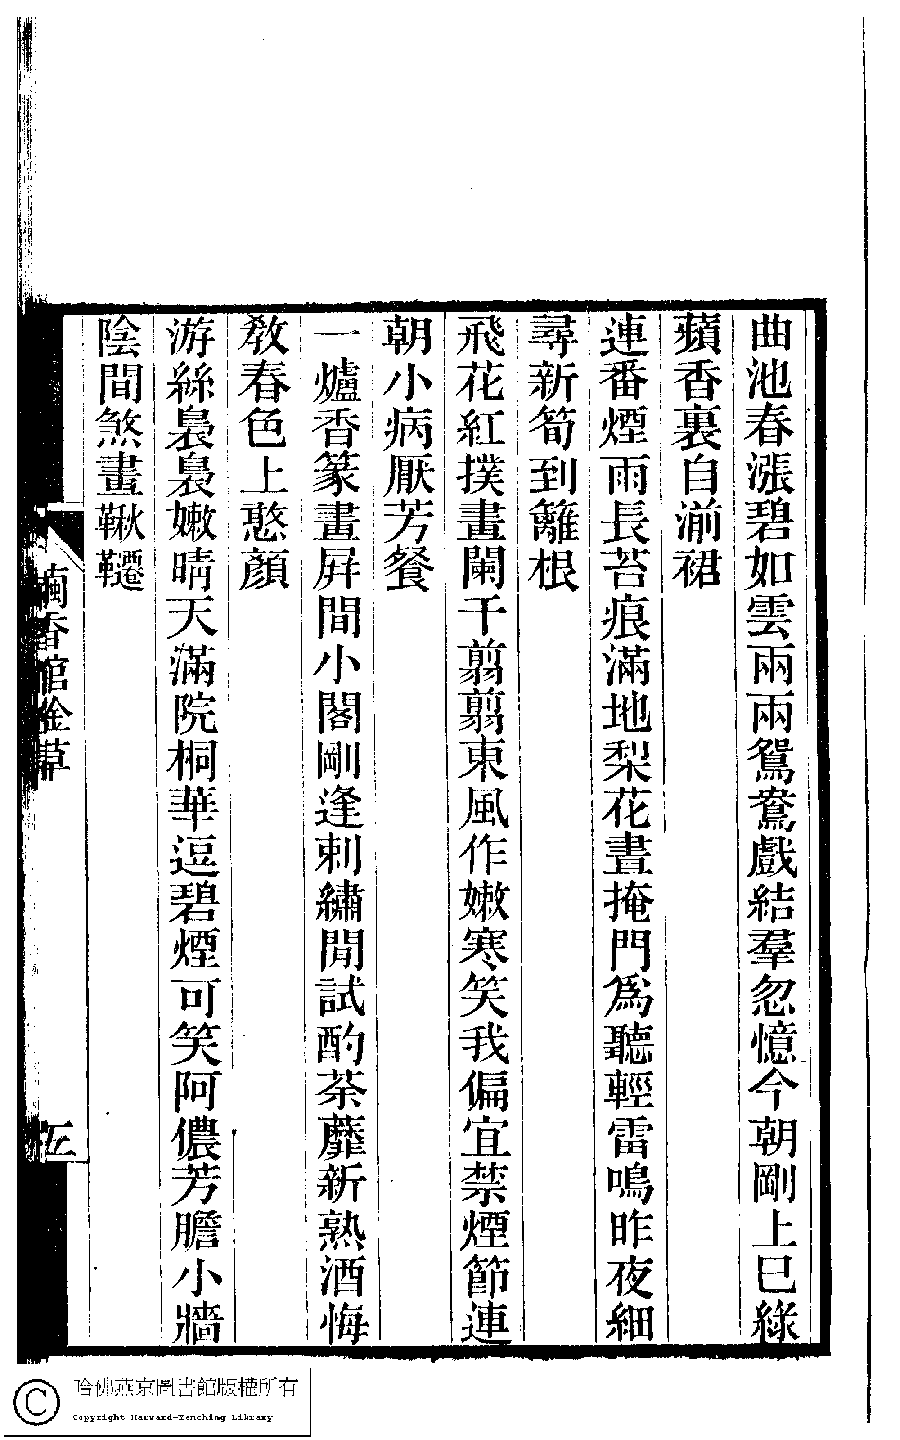 曲池春漲碧如雲兩兩鴛鴦戲結羣忽憶今朝剛上巳綠
蘋香裏自湔裙
連番煙雨長苔痕滿地梨花晝掩門爲聽輕雷鳴昨夜細
尋新筍到籬根
飛花紅撲畫闌干翦翦東風作嫩寒笑我偏宜禁煙節連
朝小病厭芳餐
一爐香篆畫屏間小閣剛逢刺繡閒試酌荼蘼新熟酒悔
敎春色上憨顏
游絲裊裊嫩晴天滿院桐華逗碧煙可笑阿儂芳膽小牆
陰閒煞畫鞦韆
香館唫草
五
哈佛燕京圖書館版權所有
Copyright Harvard-Yenching Library